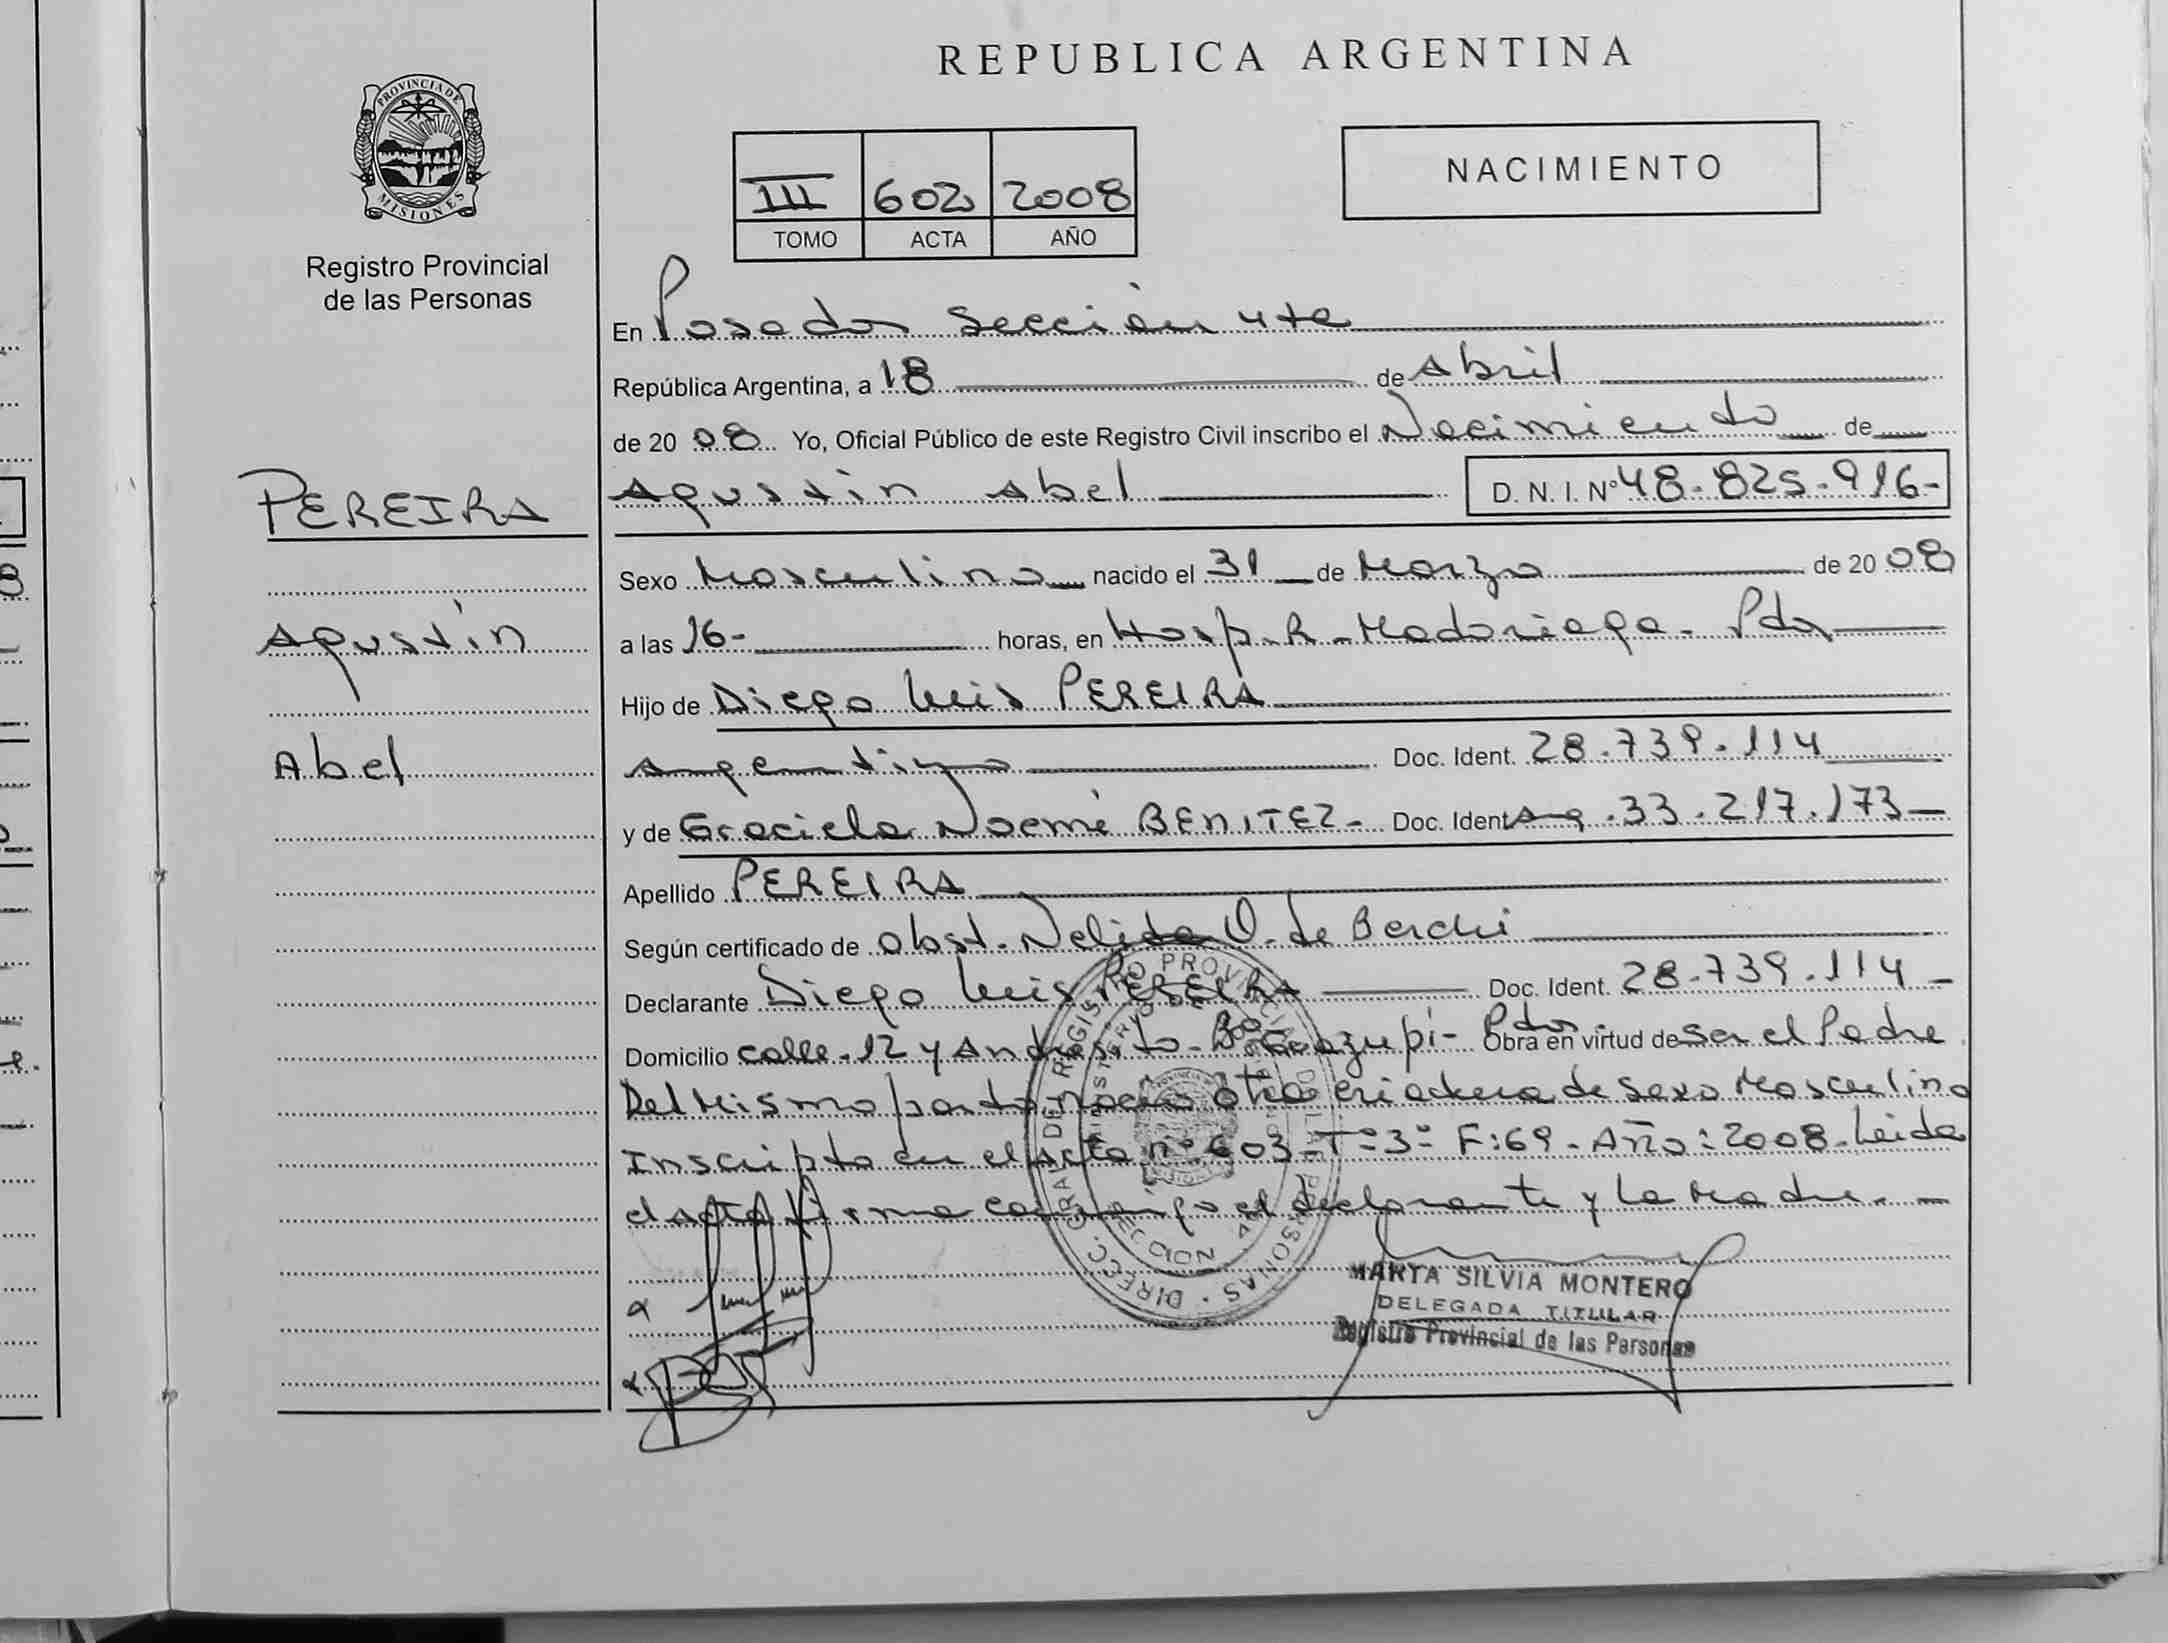 REPUBLICA ARGENTINA
PROVINCIA DE
MISIONES
Registro Provincial
de las Personas
III 602 2008
TOMO ACTA AÑO
NACIMIENTO
En Posadas Sección 4ta
República Argentina, a 18 de Abril
de 2008 Yo, Oficial Público de este Registro Civil inscribo el Nacimiento de
PEREIRA
Agustín Abel D. N. I. Nº 48-825-916-
Sexo Masculino nacido el 31 de Marzo de 2008
Agustín
a las 16- horas, en Hosp. R. Madariaga - Pdas
Hijo de Diego Luis PEREIRA
Abel
Argentino Doc. Ident. 28.739.114
y de Graciela Noemí BENITEZ- Doc. Ident Arg. 33.217.173-
Apellido PEREIRA
Según certificado de obst. Nelida O. de Berchi
Declarante Diego Luis PEREIRA Doc. Ident. 28.739.114-
Domicilio calle-12 y Andresito- Bº Pdas- Obra en virtud de ser el Padre
Del Mismo parto nació otra criatura de sexo Masculino
Inscripto en el acta nº 603-Tº3º F:69-Año:2008-Leida
el acta firma conmigo el declarante y la Madre.-
MARTA SILVIA MONTERO
DELEGADA TITULAR
Registro Provincial de las Personas